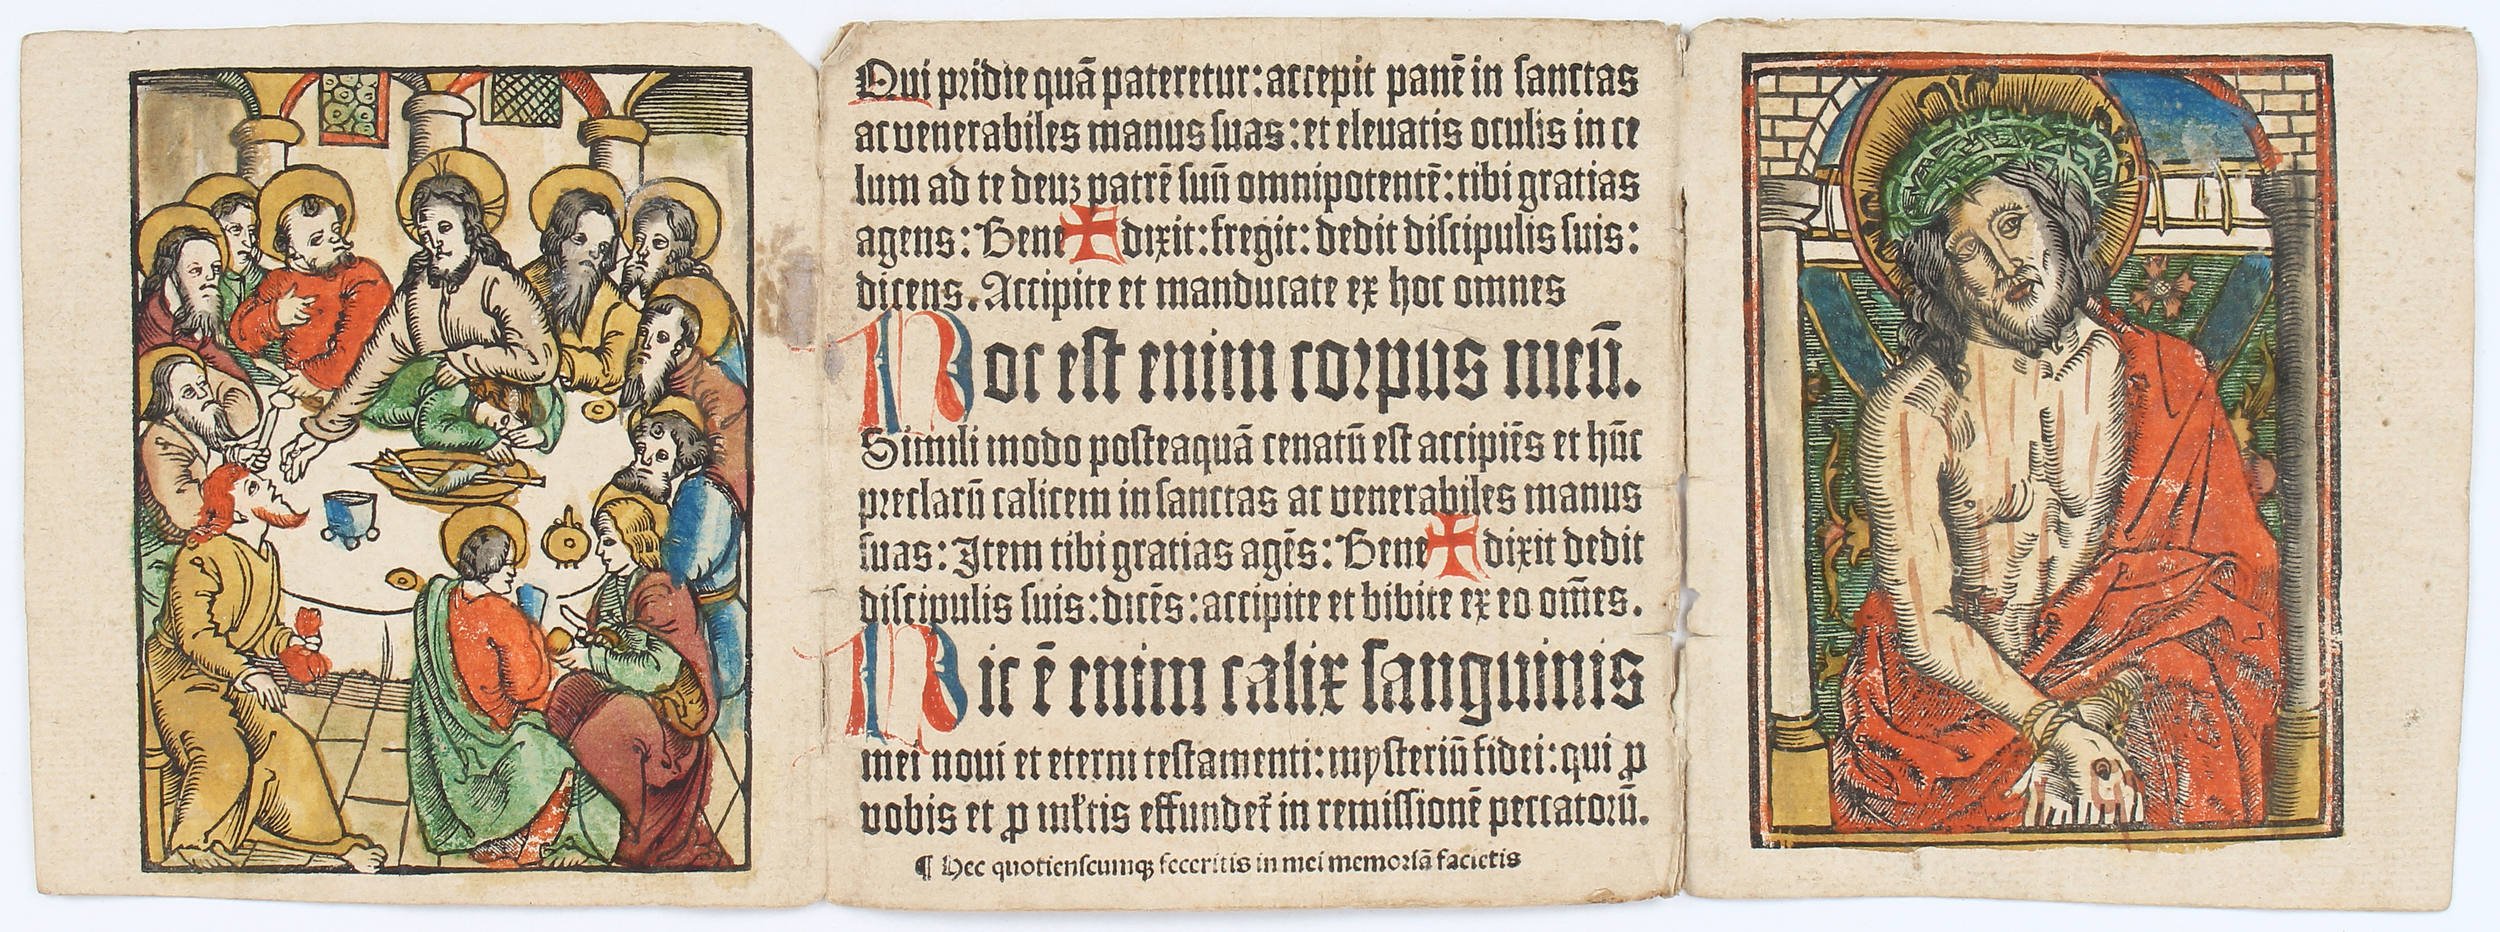 Qui pridie quā pateretur: accepit panē in sanctas
ac venerabiles manus suas: et eleuatis oculis in ce
lum ad te deuz patrē suū omnipotentē: tibi gratias
agens: Bene✠dixit: fregit: dedit discipulis suis:
dicens. Accipite et manducate ex hoc omnes
Hoc est enim corpus meū.
Simili modo posteaquā cenatū est accipiēs et hūc
preclarū calicem in sanctas ac venerabiles manus
suas: Item tibi gratias agēs: Bene✠dixit dedit
discipulis suis: dicēs: accipite et bibite ex eo om̄es.
Hic ē enim calix sanguinis
mei noui et eterni testamenti: mysteriū fidei: qui ꝓ
vobis et ꝓ mĺtis effundet᷑ in remissionē peccatorū.
¶ Hec quotienscumqꝫ feceritis in mei memoriā facietis